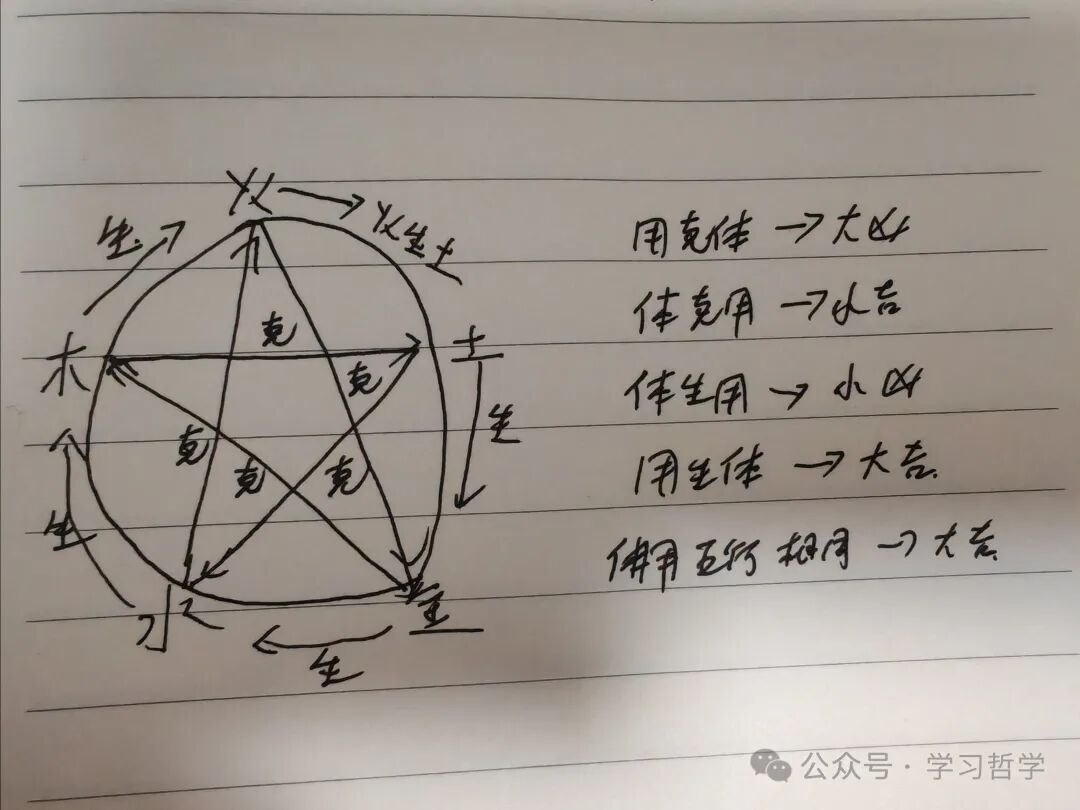 火
火生土
生
木
土
克
克
克
克
克
生
生
水
金
生
用克体→大凶
体克用→小吉
体生用→小凶
用生体→大吉
体用五行相同→大吉
公众号·学习哲学